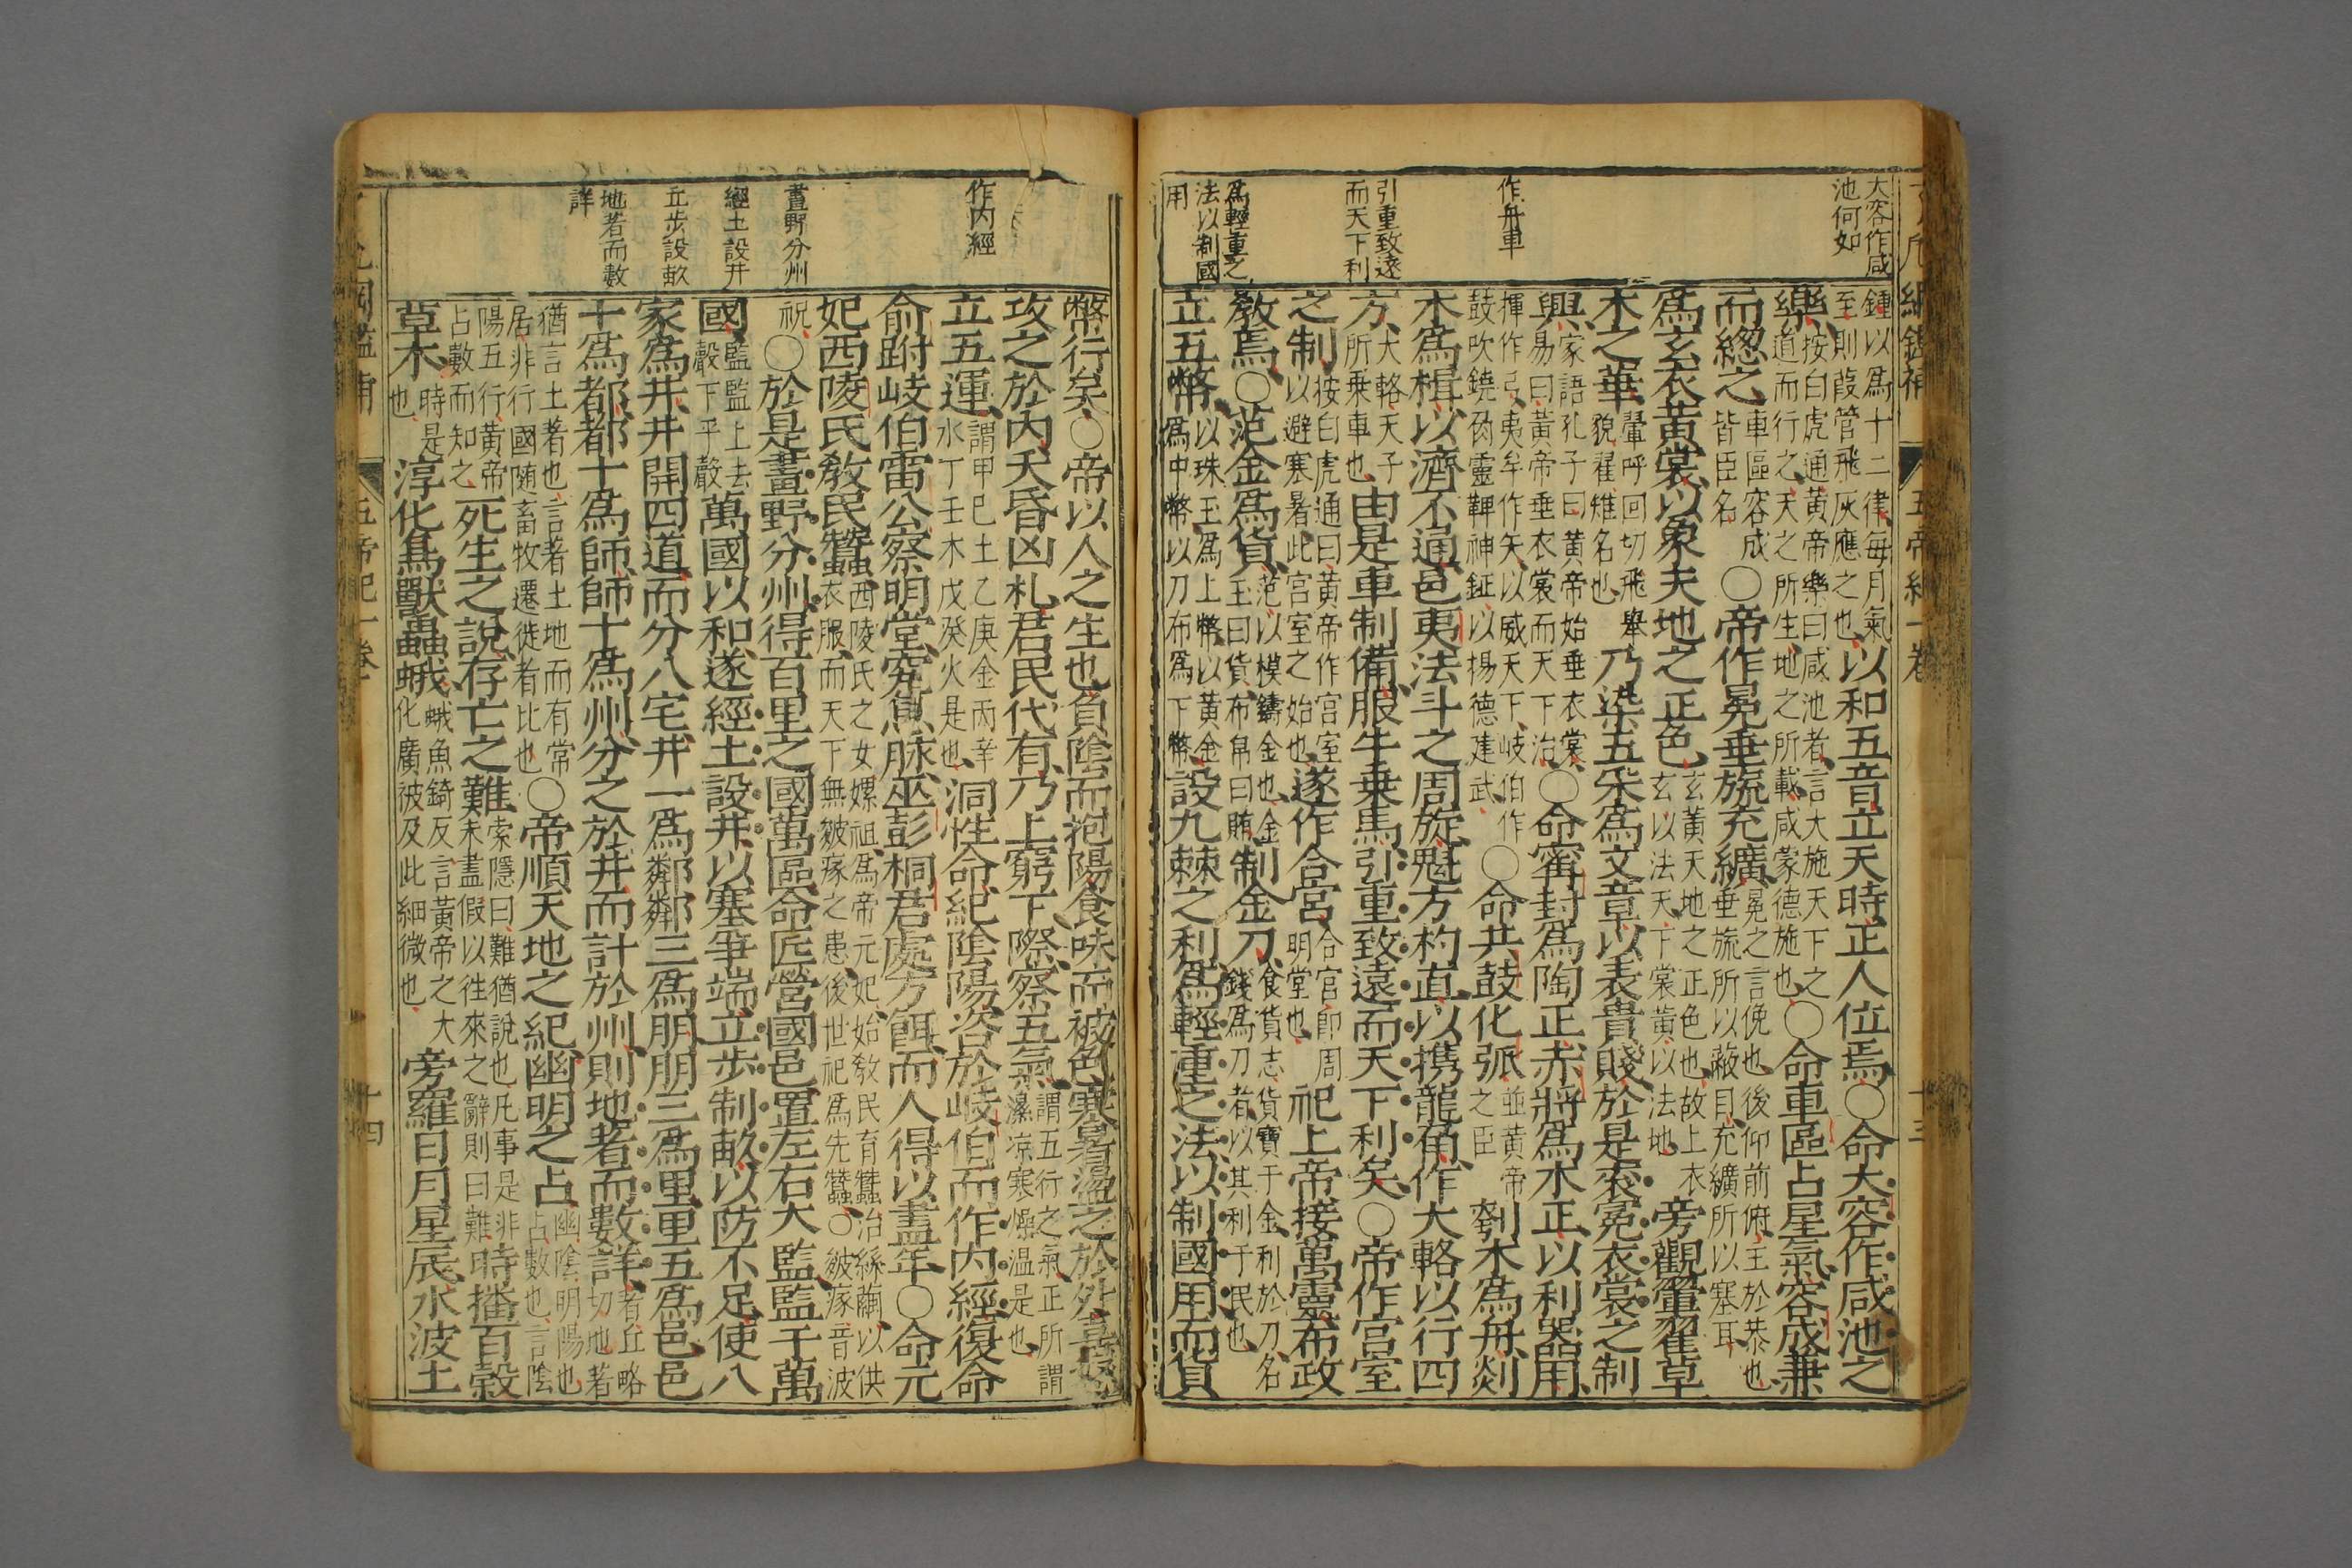 大容作咸
池何如
作舟車
引重致遠
而天下利
爲輕重之
法以制國
用
鍾以爲十二律每月氣
至則葭管飛灰應之也
以和五音立天時正人位焉○命大容作咸池之
樂
按白虎通黃帝樂曰咸池者言大施天下之
道而行之天之所生地之所載咸蒙德施也
○命車區占星氣容成兼
而總之
車區容成
皆臣名
○帝作冕垂旒充纊
冕之言俛也後仰前俯主於恭也
垂旒所以蔽目充纊所以塞耳
爲玄衣黃裳以象天地之正色
玄黃天地之正色也故上衣
玄以法天下裳黃以法地
旁觀翬翟草
木之華
翬呼回切飛舉
貌翟雉名也
乃染五采爲文章以表貴賤於是衮冕衣裳之制
興
家語孔子曰黃帝始垂衣裳
易曰黃帝垂衣裳而天下治
○命甯封爲陶正赤將爲木正以利器用
揮作弓夷牟作矢以威天下岐伯作
鼓吹鐃角靈鞞神鉦以揚德建武
○命共鼓化狐
並黃帝
之臣
刳木爲舟剡
木爲楫以濟不通邑夷法斗之周旋魁方杓直以攜龍角作大輅以行四
方
大輅天子
所乗車也
由是車制備服牛乗馬引重致遠而天下利矣○帝作宮室
之制
按白虎通曰黃帝作宮室
以避寒暑此宮室之始也
遂作合宮
合宮即周
明堂也
祀上帝接萬靈布政
敎焉○范金爲貨
范以模鑄金也金
玉曰貨布帛曰賄
制金刀
食貨志貨寶于金利於刀名
錢爲刀者以其利于民也
立五幣
以珠玉爲上幣以黃金
爲中幣以刀布爲下幣
設九棘之利爲輕重之法以制國用而貨
五帝紀一卷
十三
作内經
畫野分州
經土設井
立步設畝
地著而數
詳
幣行矣○帝以人之生也負陰而抱陽食味而被色寒暑盪之於外喜怒
攻之於内夭昏凶札君民代有乃上窮下際察五氣
謂五行之氣正所謂
濕凉寒燥温是也
立五運
謂甲巳土乙庚金丙辛
水丁壬木戊癸火是也
洞性命紀陰陽咨於岐伯而作内經復命
俞跗岐伯雷公察明堂究息脉巫彭桐君處方餌而人得以盡年○命元
妃西陵氏敎民蠶
西陵氏之女嫘祖爲帝元妃始敎民育蠶治絲繭以供
衣服而天下無皴瘃之患後世祀爲先蠶○皴瘃音波
祝
○於是畫野分州得百里之國萬區命匠營國邑置左右大監監于萬
國
監監上去
聲下平聲
萬國以和遂經土設井以塞爭端立步制畝以防不足使八
家爲井井開四道而分八宅井一爲鄰鄰三爲朋朋三爲里里五爲邑邑
十爲都都十爲師師十爲州分之於井而計於州則地著而數詳
著丘略
切地著
猶言土著也言著土地而有常
居非行國随畜牧遷徙者比也
○帝順天地之紀幽明之占
幽陰明陽也
占數也言陰
陽五行黃帝
占數而知之
死生之說存亡之難
索隱曰難猶說也凡事是非
未盡假以徃來之辭則曰難
時播百穀
草木
時是
也
淳化鳥獸蟲蛾
蛾魚錡反言黃帝之大
化廣被及此細微也
旁羅日月星辰水波土
五帝紀一卷
十四